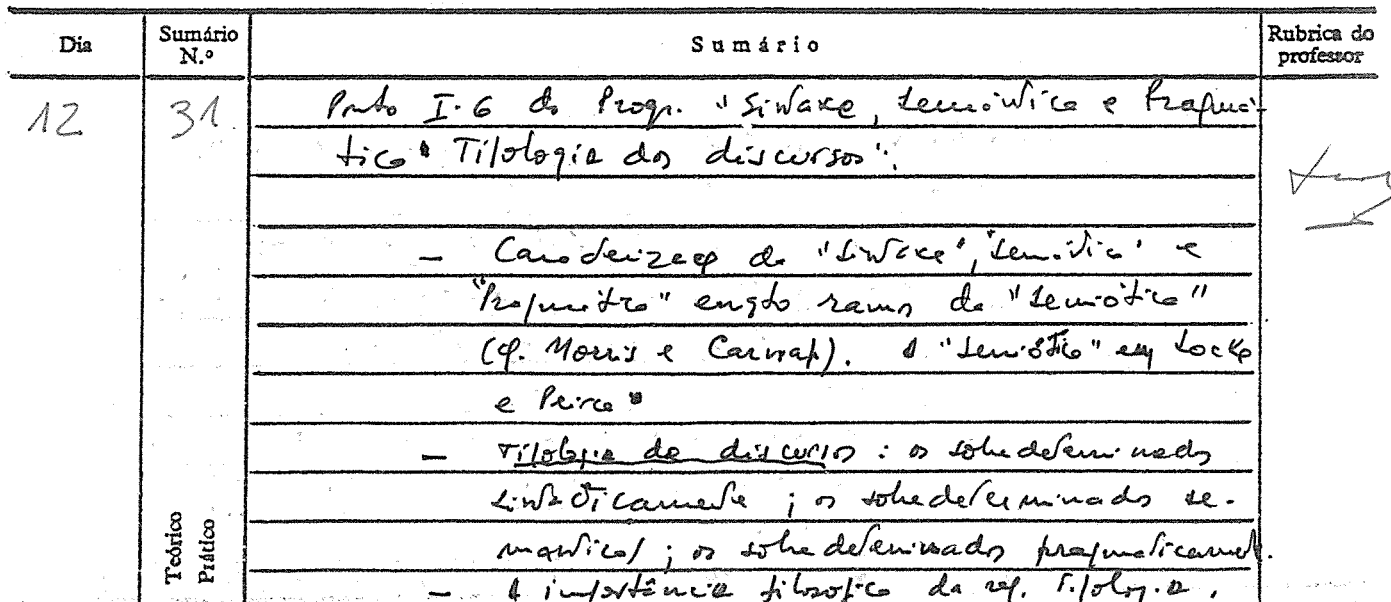 Dia
Sumário N.º
Sumário
Rubrica do professor
12
31
Ponto I.6 do Progr. "Sintaxe, Semântica e Pragmá-
tica. Tipologia dos discursos".
– Caracterização da "Sintaxe", "Semântica" e
"Pragmática" enqto ramos da "Semiótica"
(cf. Morris e Carnap). A "Semiótica" em Locke
e Peirce.
– Tipologia dos discursos : os sobredeterminados
sintaticamente ; os sobredeterminados se-
mantica/ ; os sobredeterminados pragmaticament.
– A importância filosófica da ref. Tipologia.
Teórico
Prático